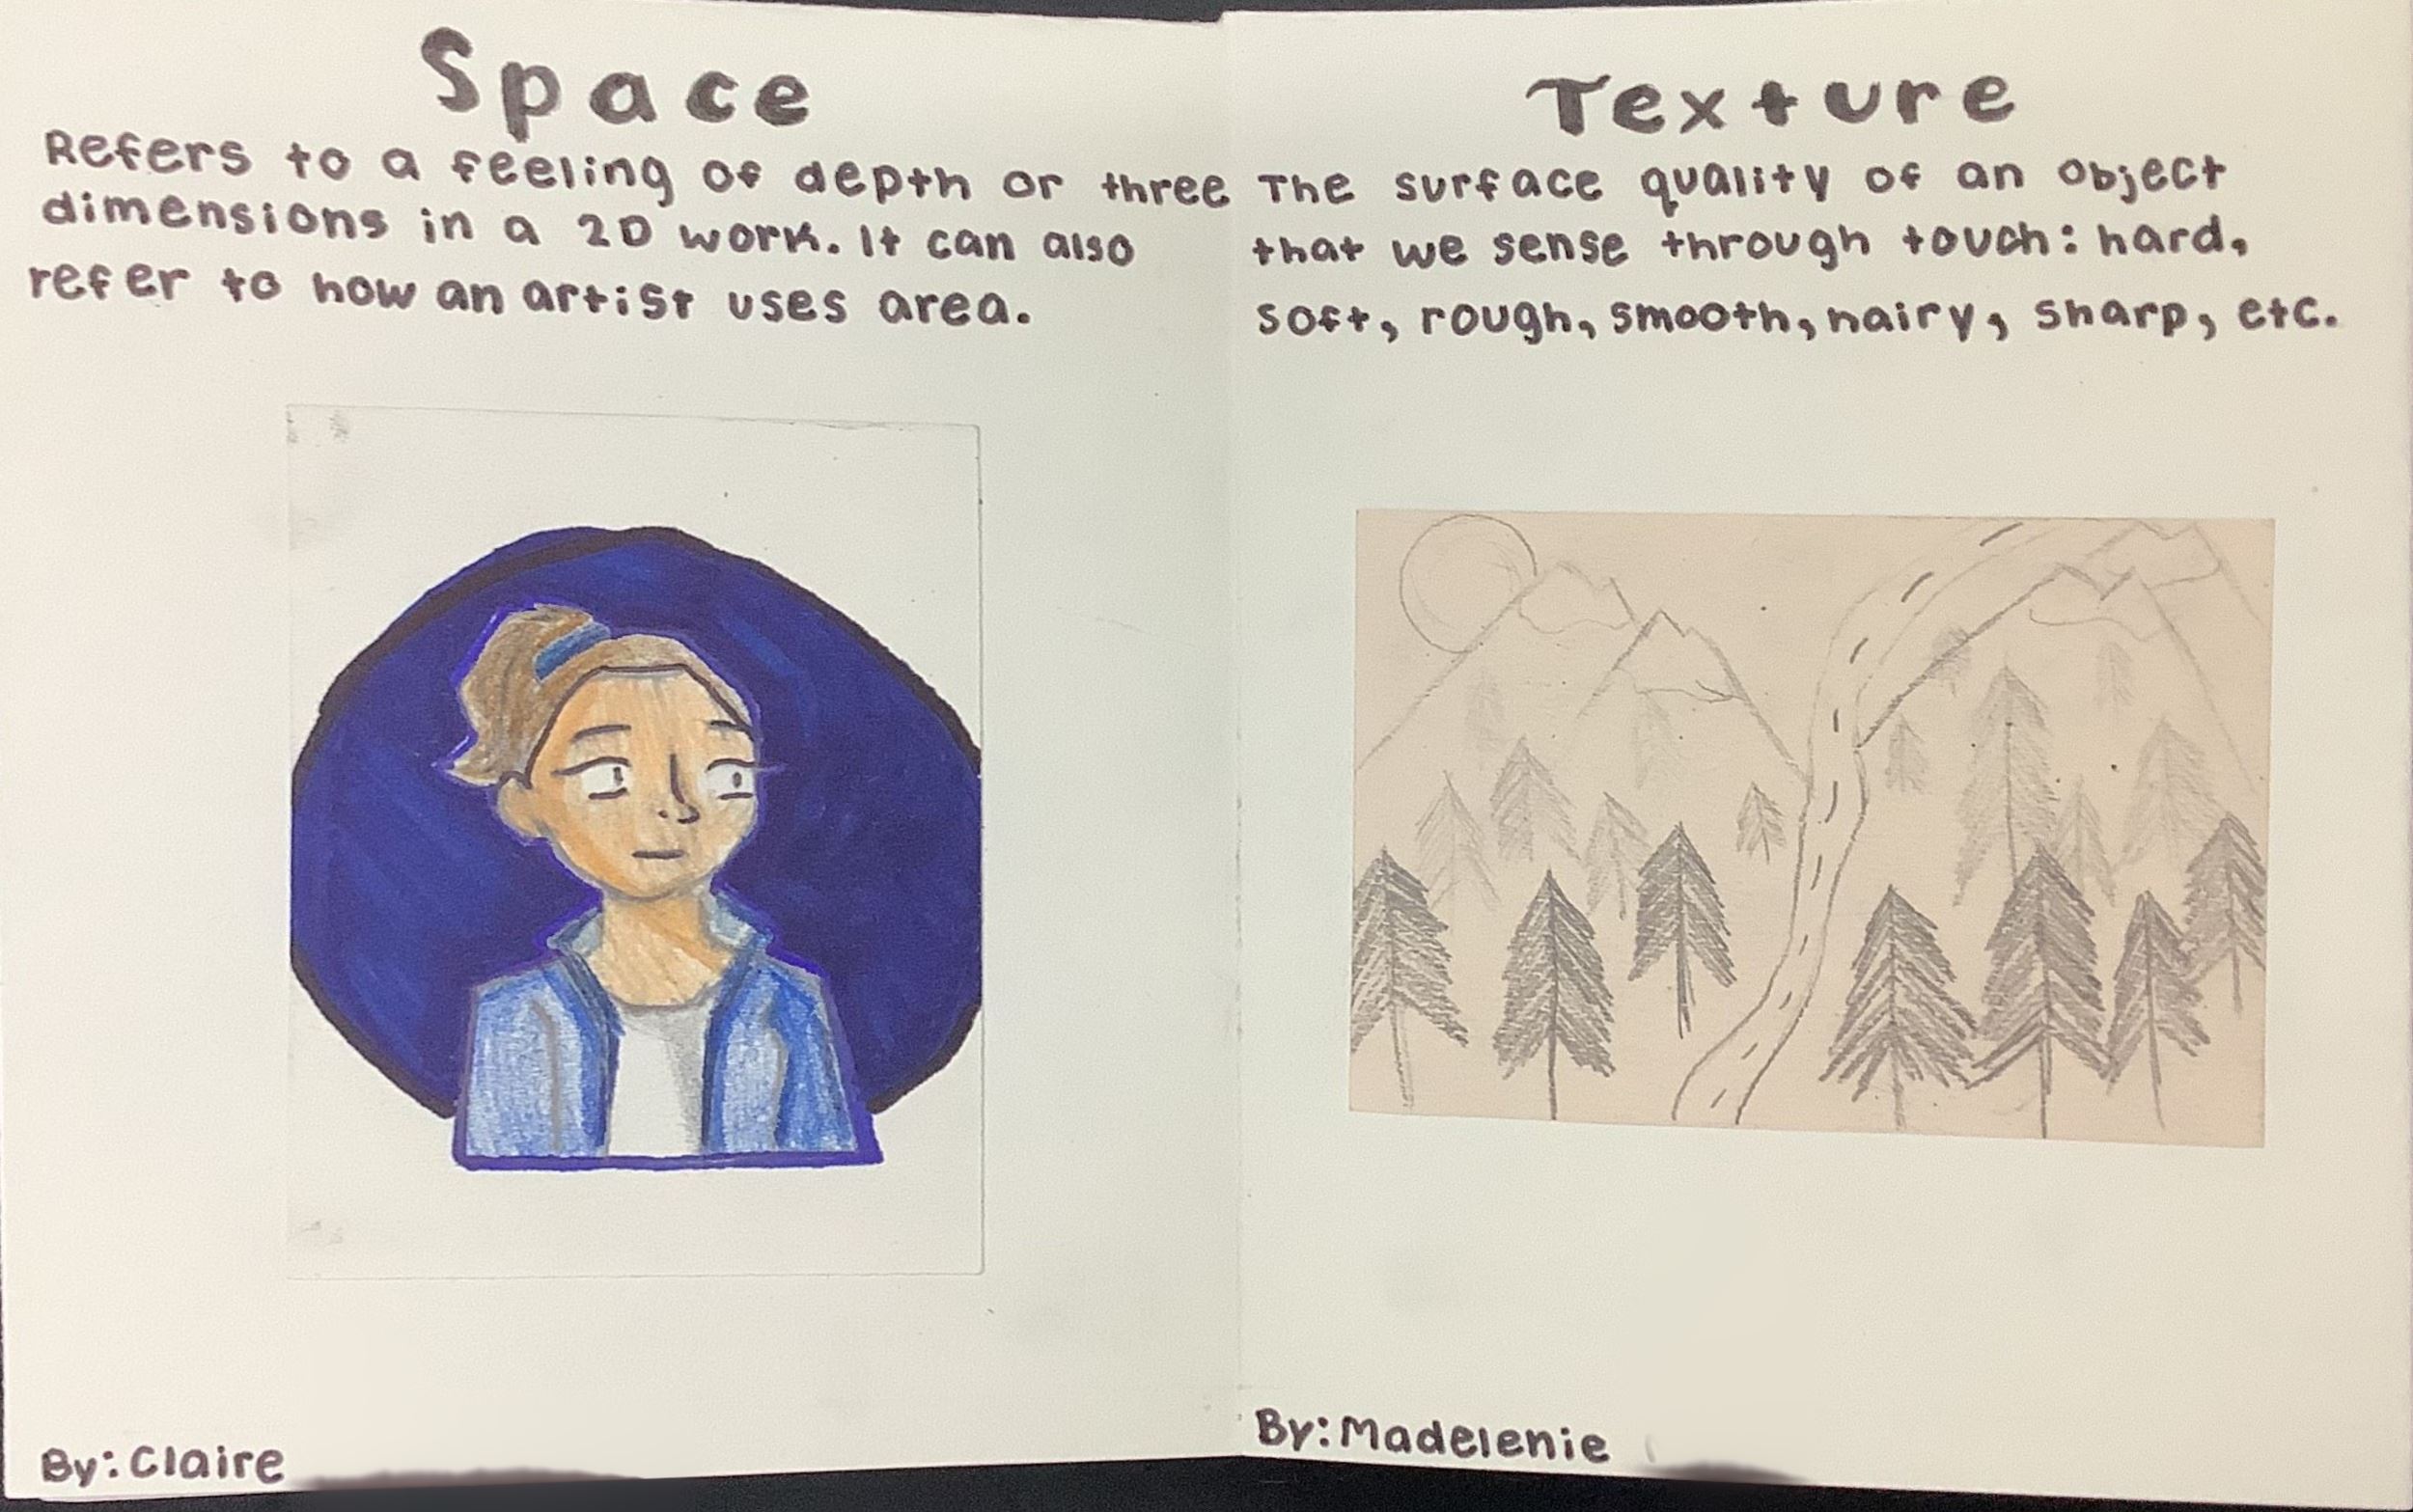 Space
Refers to a feeling of depth or three
dimensions in a 2D work. It can also
refer to how an artist uses area.
By: Claire
Texture
The surface quality of an object
that we sense through touch: hard,
soft, rough, smooth, hairy, sharp, etc.
By: Madelenie